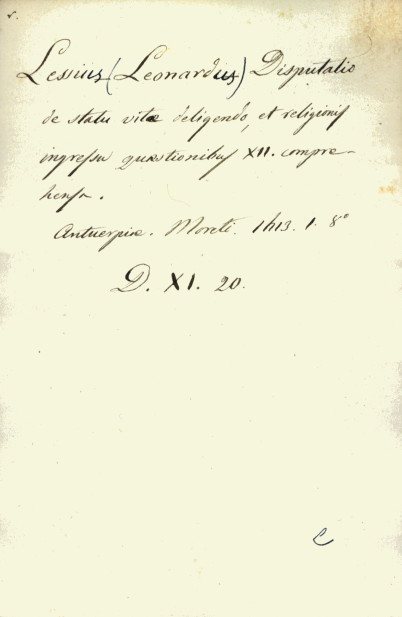 v.
Lessius (Leonardus) Disputatio
de statu vitæ deligendo, et religionis
ingressu quæstionibus XII. compre-
hensa.
Antuerpiæ. Moreti. 1613. 1. 8°
D. XI. 20.
C